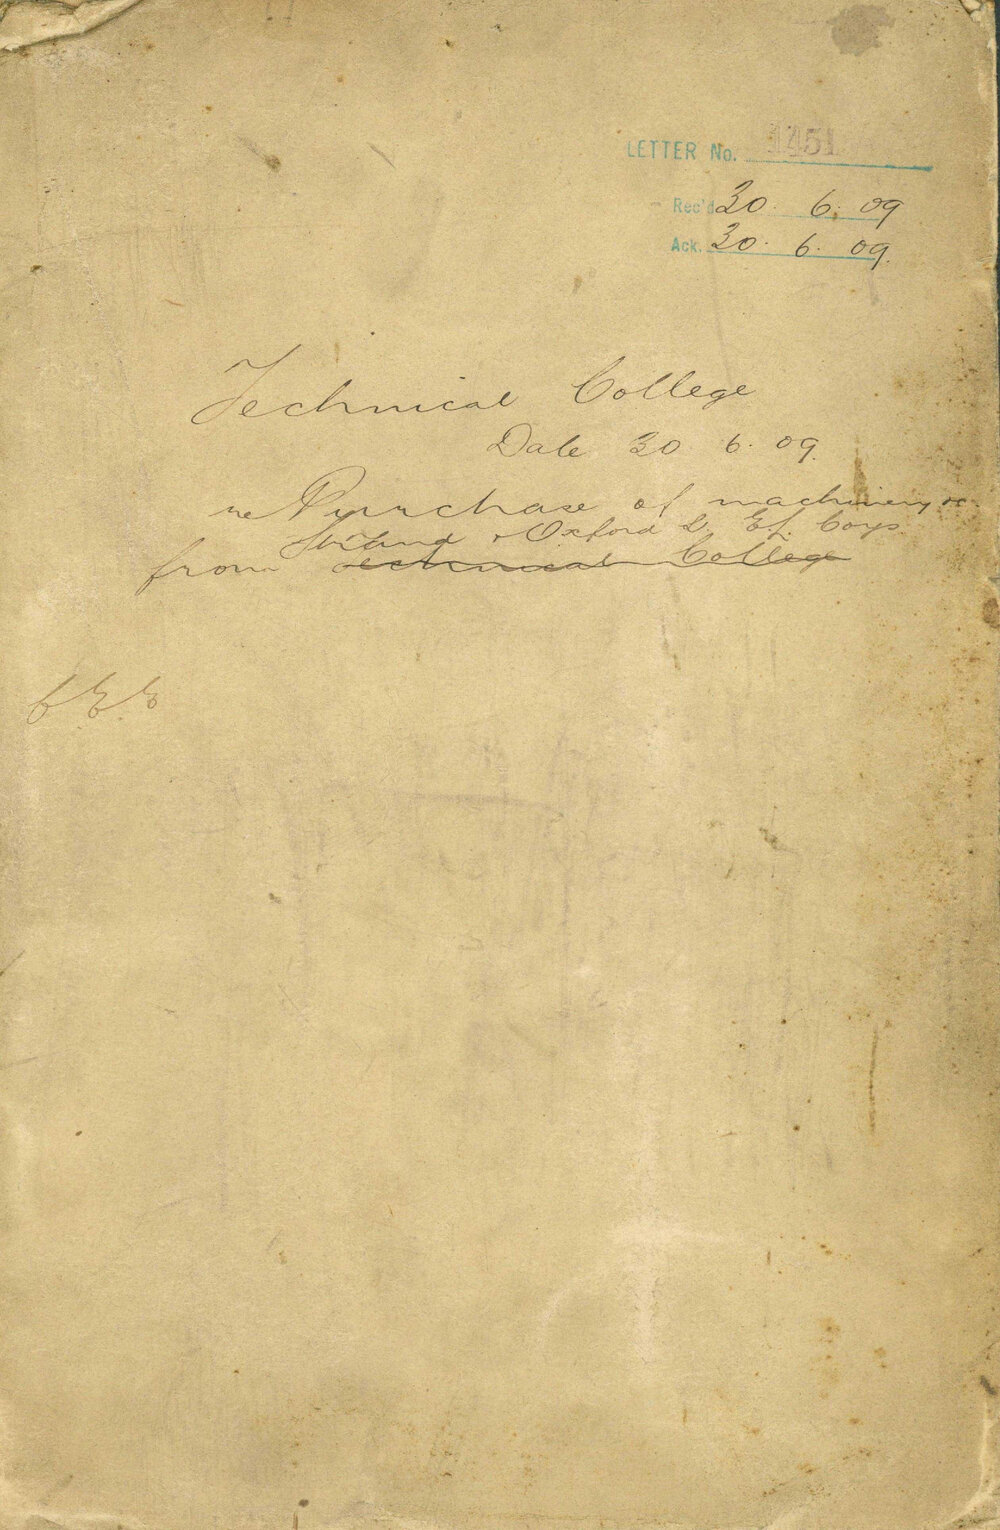 LETTER No. 1451
Rec'd 30. 6. 09
Ack. 30. 6. 09.
Technical College
Date 30 6. 09.
re Purchase of machinery &c
Strand & Oxford S. El. Coys.
from Technical College